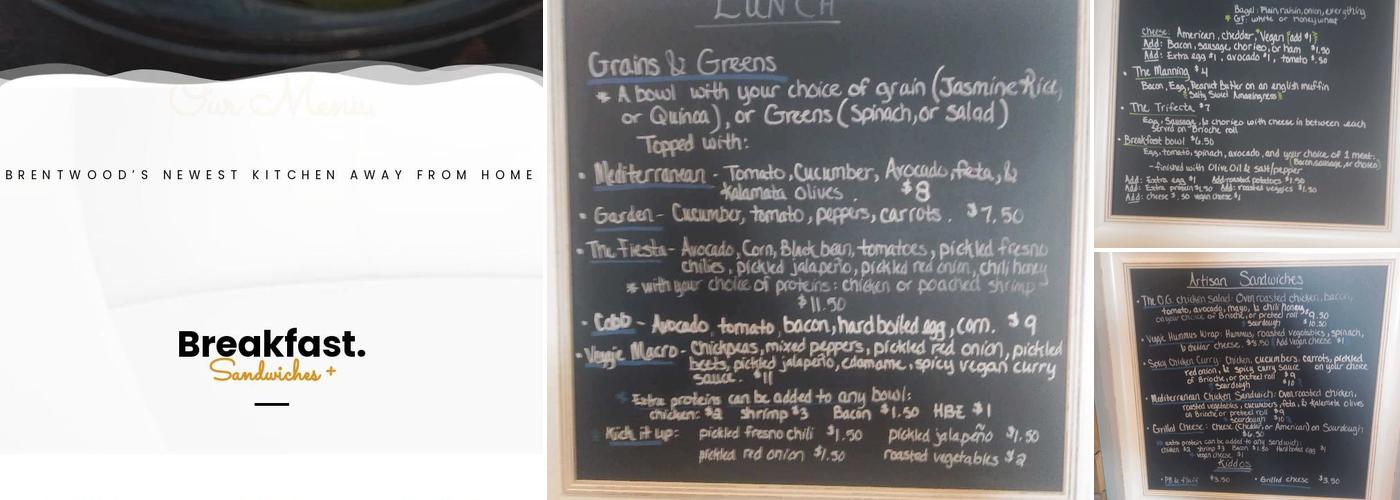 Our Menu
BRENTWOOD'S NEWEST KITCHEN AWAY FROM HOME
Breakfast.
Sandwiches +
LUNCH
Grains & Greens
* A bowl with your choice of grain (Jasmine Rice,
or Quinoa), or Greens (Spinach, or salad)
Topped with:
• Mediterranean - Tomato, Cucumber, Avocado, feta, &
Kalamata olives. $8
• Garden - Cucumber, tomato, peppers, carrots. $7.50
• The Fiesta - Avocado, Corn, Black bean, tomatoes, pickled fresno
chilies, pickled jalapeño, pickled red onion, chili honey
* with your choice of proteins: chicken or poached shrimp
$11.50
• Cobb - Avocado, tomato, bacon, hard boiled egg, corn. $9
• Veggie Macro - Chickpeas, mixed peppers, pickled red onion, pickled
beets, pickled jalapeño, edamame, spicy vegan curry
sauce. $11
* Extra proteins can be added to any bowl:
chicken: $2 shrimp $3 Bacon $1.50 HBE $1
* Kick it up: pickled fresno chili $1.50 pickled jalapeño $1.50
pickled red onion $1.50 roasted vegetables $2
Bagel: Plain, raisin, onion, everything
* GF: white or honeywheat
cheese: American, chedder, *Vegan [add $1]*
Add: Bacon, sausage, choriço, or ham $1.50
Add: Extra egg $1, avocado $1, tomato $.50
• The Manning $4
Bacon, Egg, Peanut Butter on an english muffin
* Salty Sweet Amazingness *
• The Trifecta $7
Egg, Sausage, & choriço with cheese in between each
served on Brioche roll
• Breakfast bowl $6.50
Egg, tomato, spinach, avocado, and your choice of 1 meat:
(Bacon, sausage, or choriço)
- finished with Olive Oil & salt/pepper
Add: Extra egg $1 Add roasted potatoes $1.50
Add: Extra protein $1.50 Add: roasted veggies $1.50
Add: cheese $.50 vegan cheese $1
Artisan Sandwiches
• The O.G. chicken salad: Oven roasted chicken, bacon,
tomato, avocado, mayo, & chili honey
on your choice of Brioche, or pretzel roll $9.50
sourdough $10.50
• Veggie Hummus Wrap: Hummus, roasted vegetables, spinach,
& cheese. $8.50 Add Vegan cheese $1
• Spicy Chicken Curry: Chicken, cucumbers, carrots, pickled
red onion, & spicy curry sauce on your choice
of Brioche, or pretzel roll $9
sourdough $10
• Mediterranean Chicken Sandwich: Oven roasted chicken,
roasted vegetables, cucumbers, feta, & Kalamata olives
on Brioche or pretzel roll $9
sourdough $10
• Grilled Cheese: Cheese (Chedder, or American) on Sourdough
$6.50
* extra protein can be added to any sandwich:
chicken $2 shrimp $3 Bacon $1.50 Hard boiled egg $1
vegan cheese $1
Kiddos
• PB & fluff $3.50 • Grilled cheese $3.50